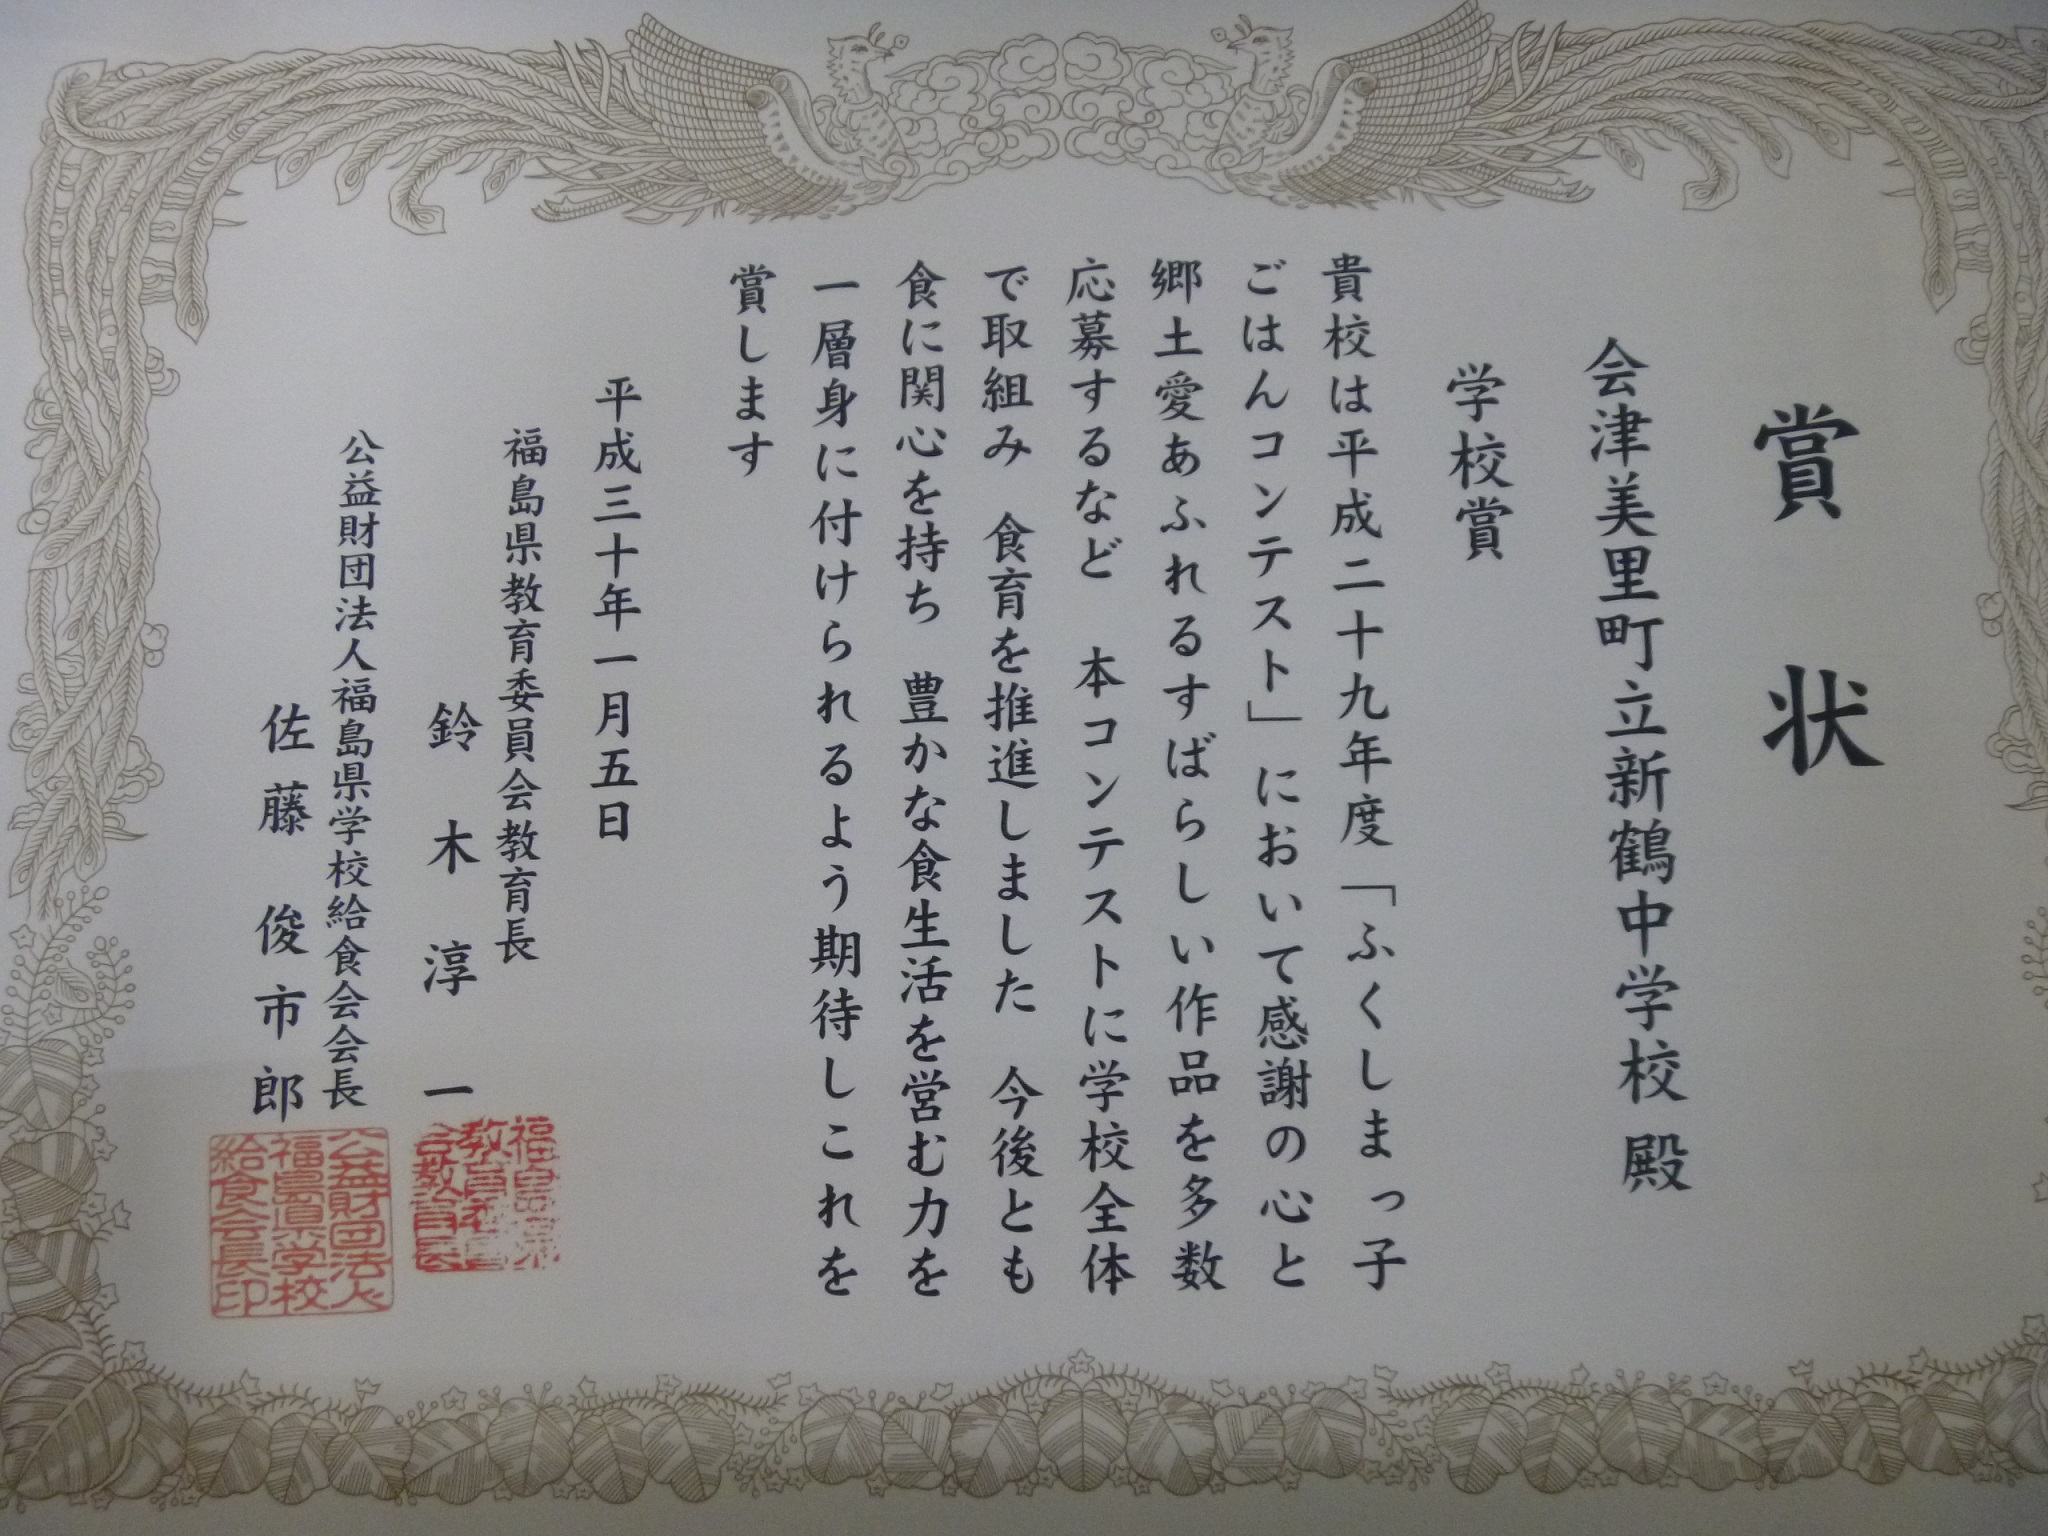 賞状
会津美里町立新鶴中学校 殿
学校賞
貴校は平成二十九年度「ふくしまっ子
ごはんコンテスト」において感謝の心と
郷土愛あふれるすばらしい作品を多数
応募するなど 本コンテストに学校全体
で取組み 食育を推進しました 今後とも
食に関心を持ち 豊かな食生活を営む力を
一層身に付けられるよう期待しこれを
賞します
平成三十年一月五日
福島県教育委員会教育長
鈴木淳一
福島県
教育委員
会教育長
公益財団法人福島県学校給食会会長
佐藤俊市郎
公益財団法人
福島県学校
給食会長印